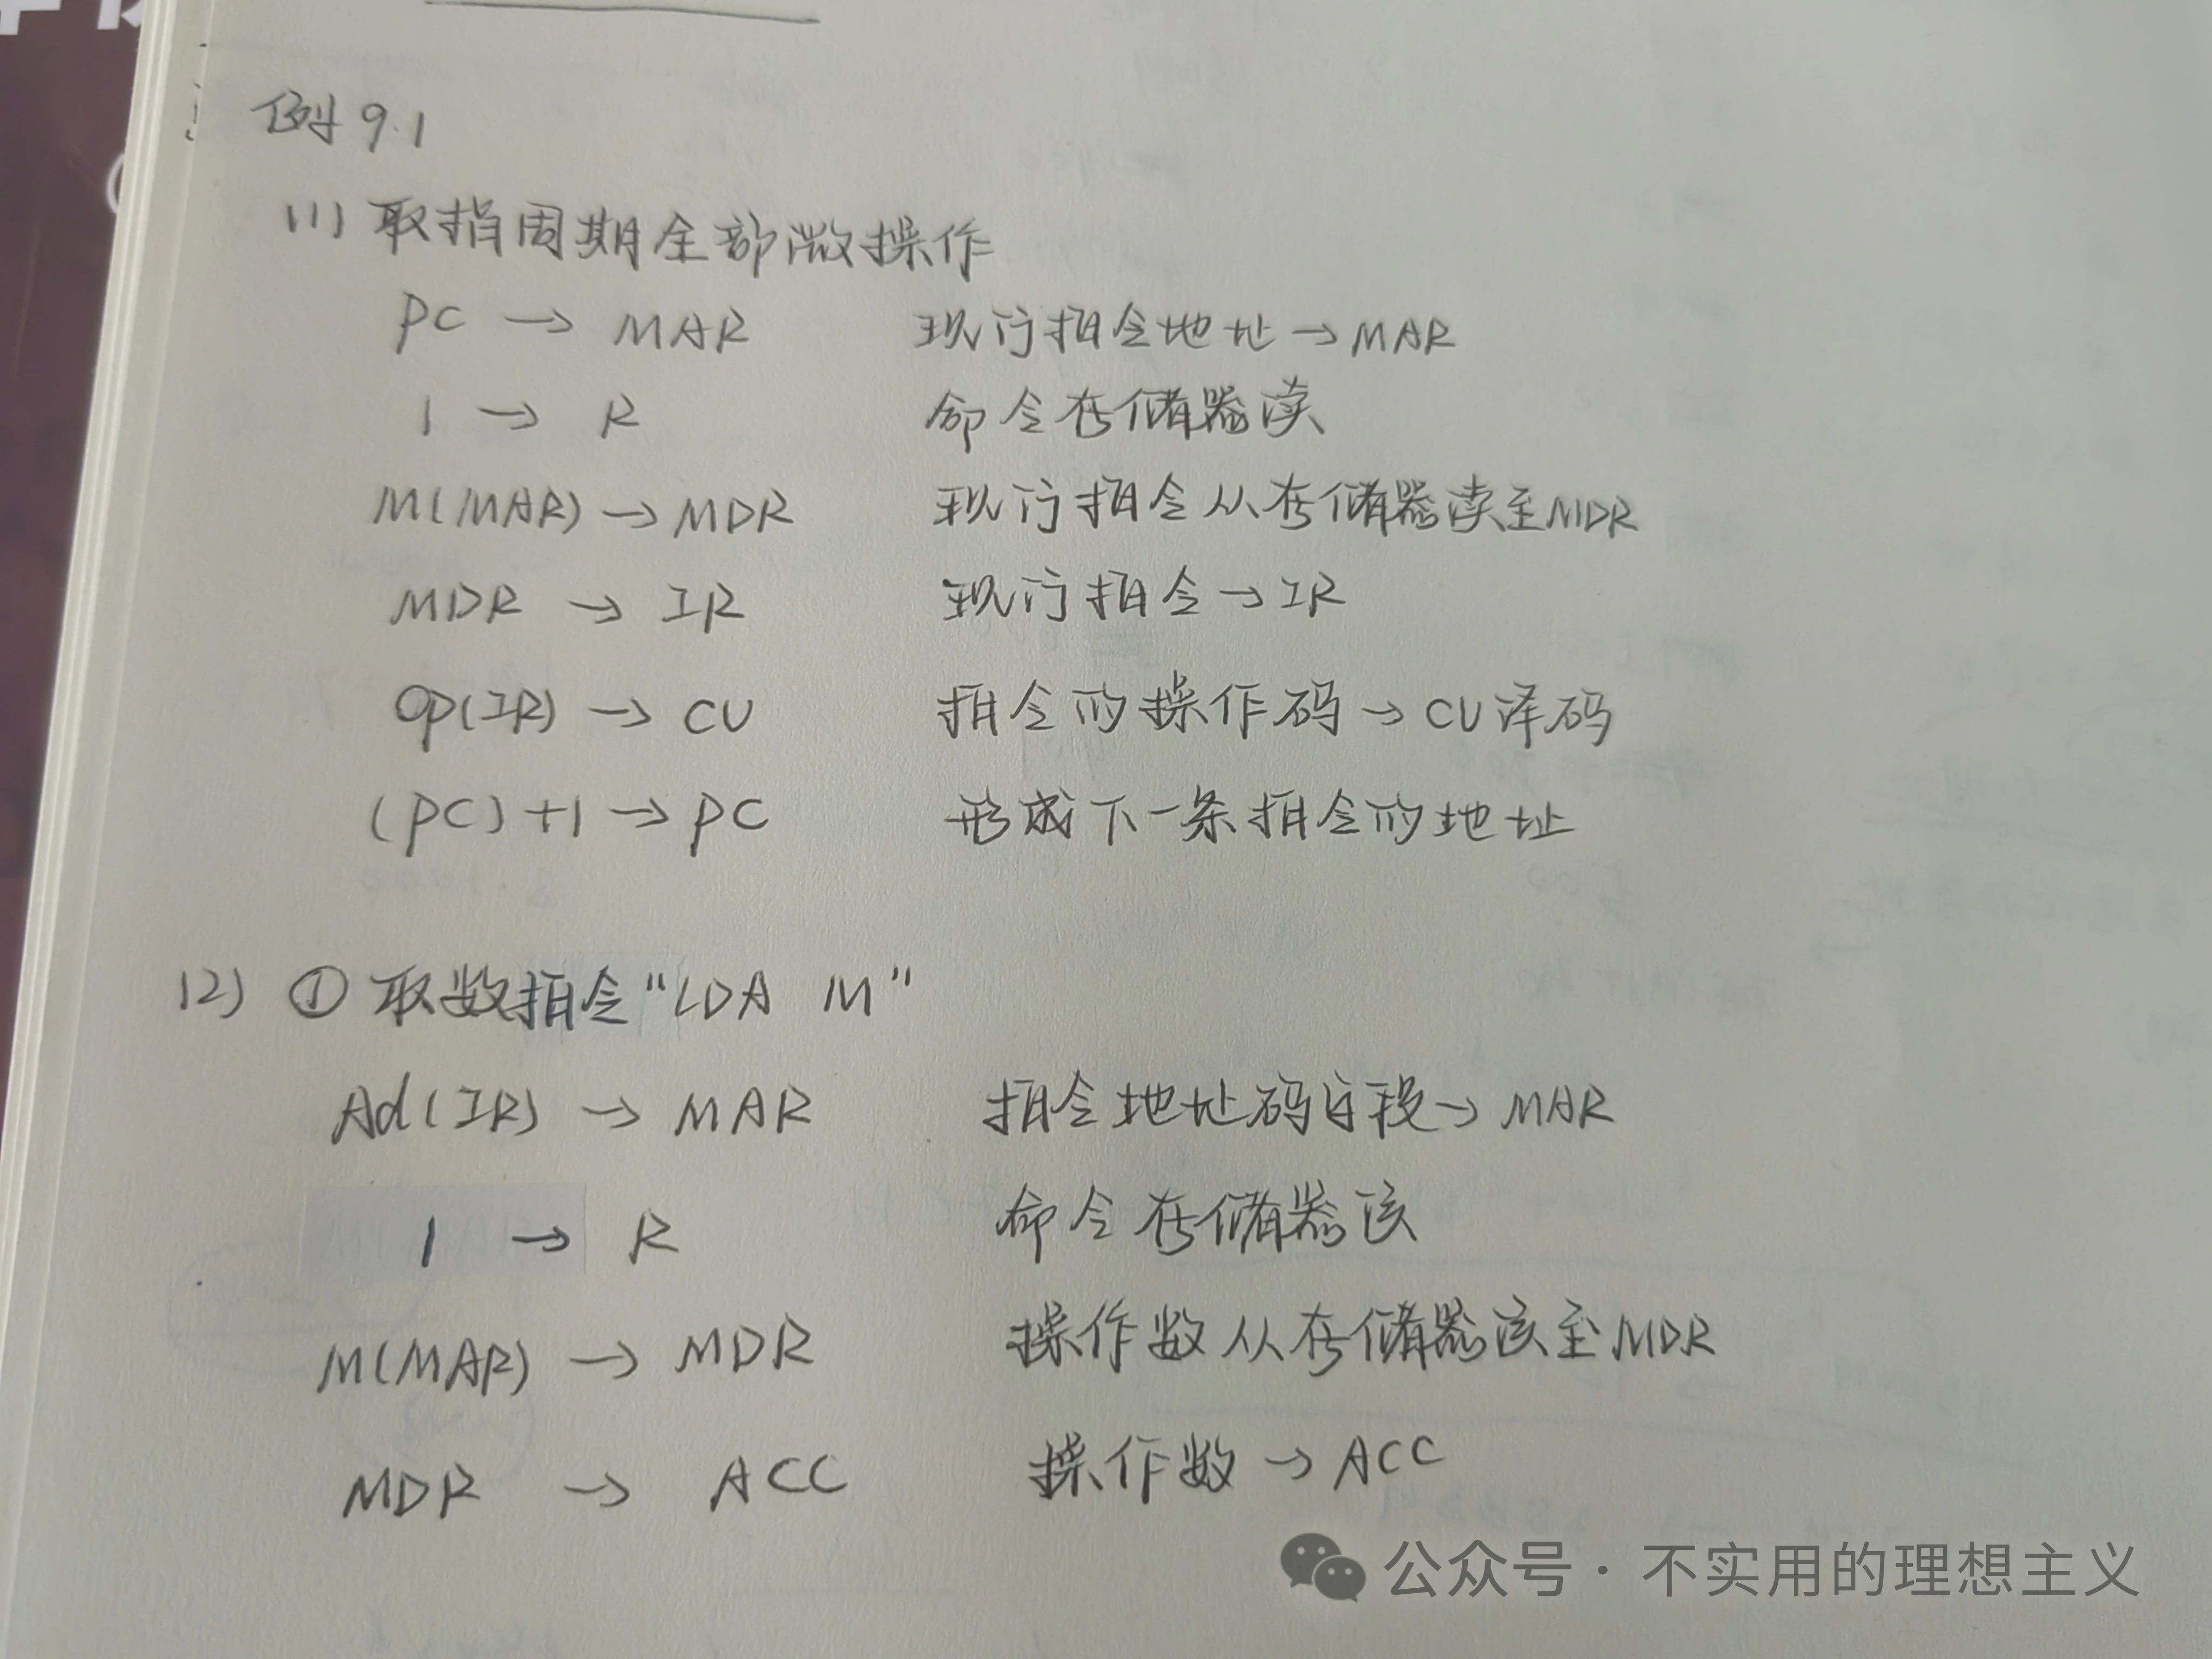 例 9.1
(1) 取指周期全部微操作
PC → MAR 现行指令地址 → MAR
1 → R 命令存储器读
M(MAR) → MDR 现行指令从存储器读至MDR
MDR → IR 现行指令 → IR
OP(IR) → CU 指令的操作码 → CU译码
(PC)+1 → PC 形成下一条指令的地址
(2) ① 取数指令“LDA M”
Ad(IR) → MAR 指令地址码字段 → MAR
1 → R 命令存储器读
M(MAR) → MDR 操作数从存储器读至MDR
MDR → ACC 操作数 → ACC
公众号 · 不实用的理想主义